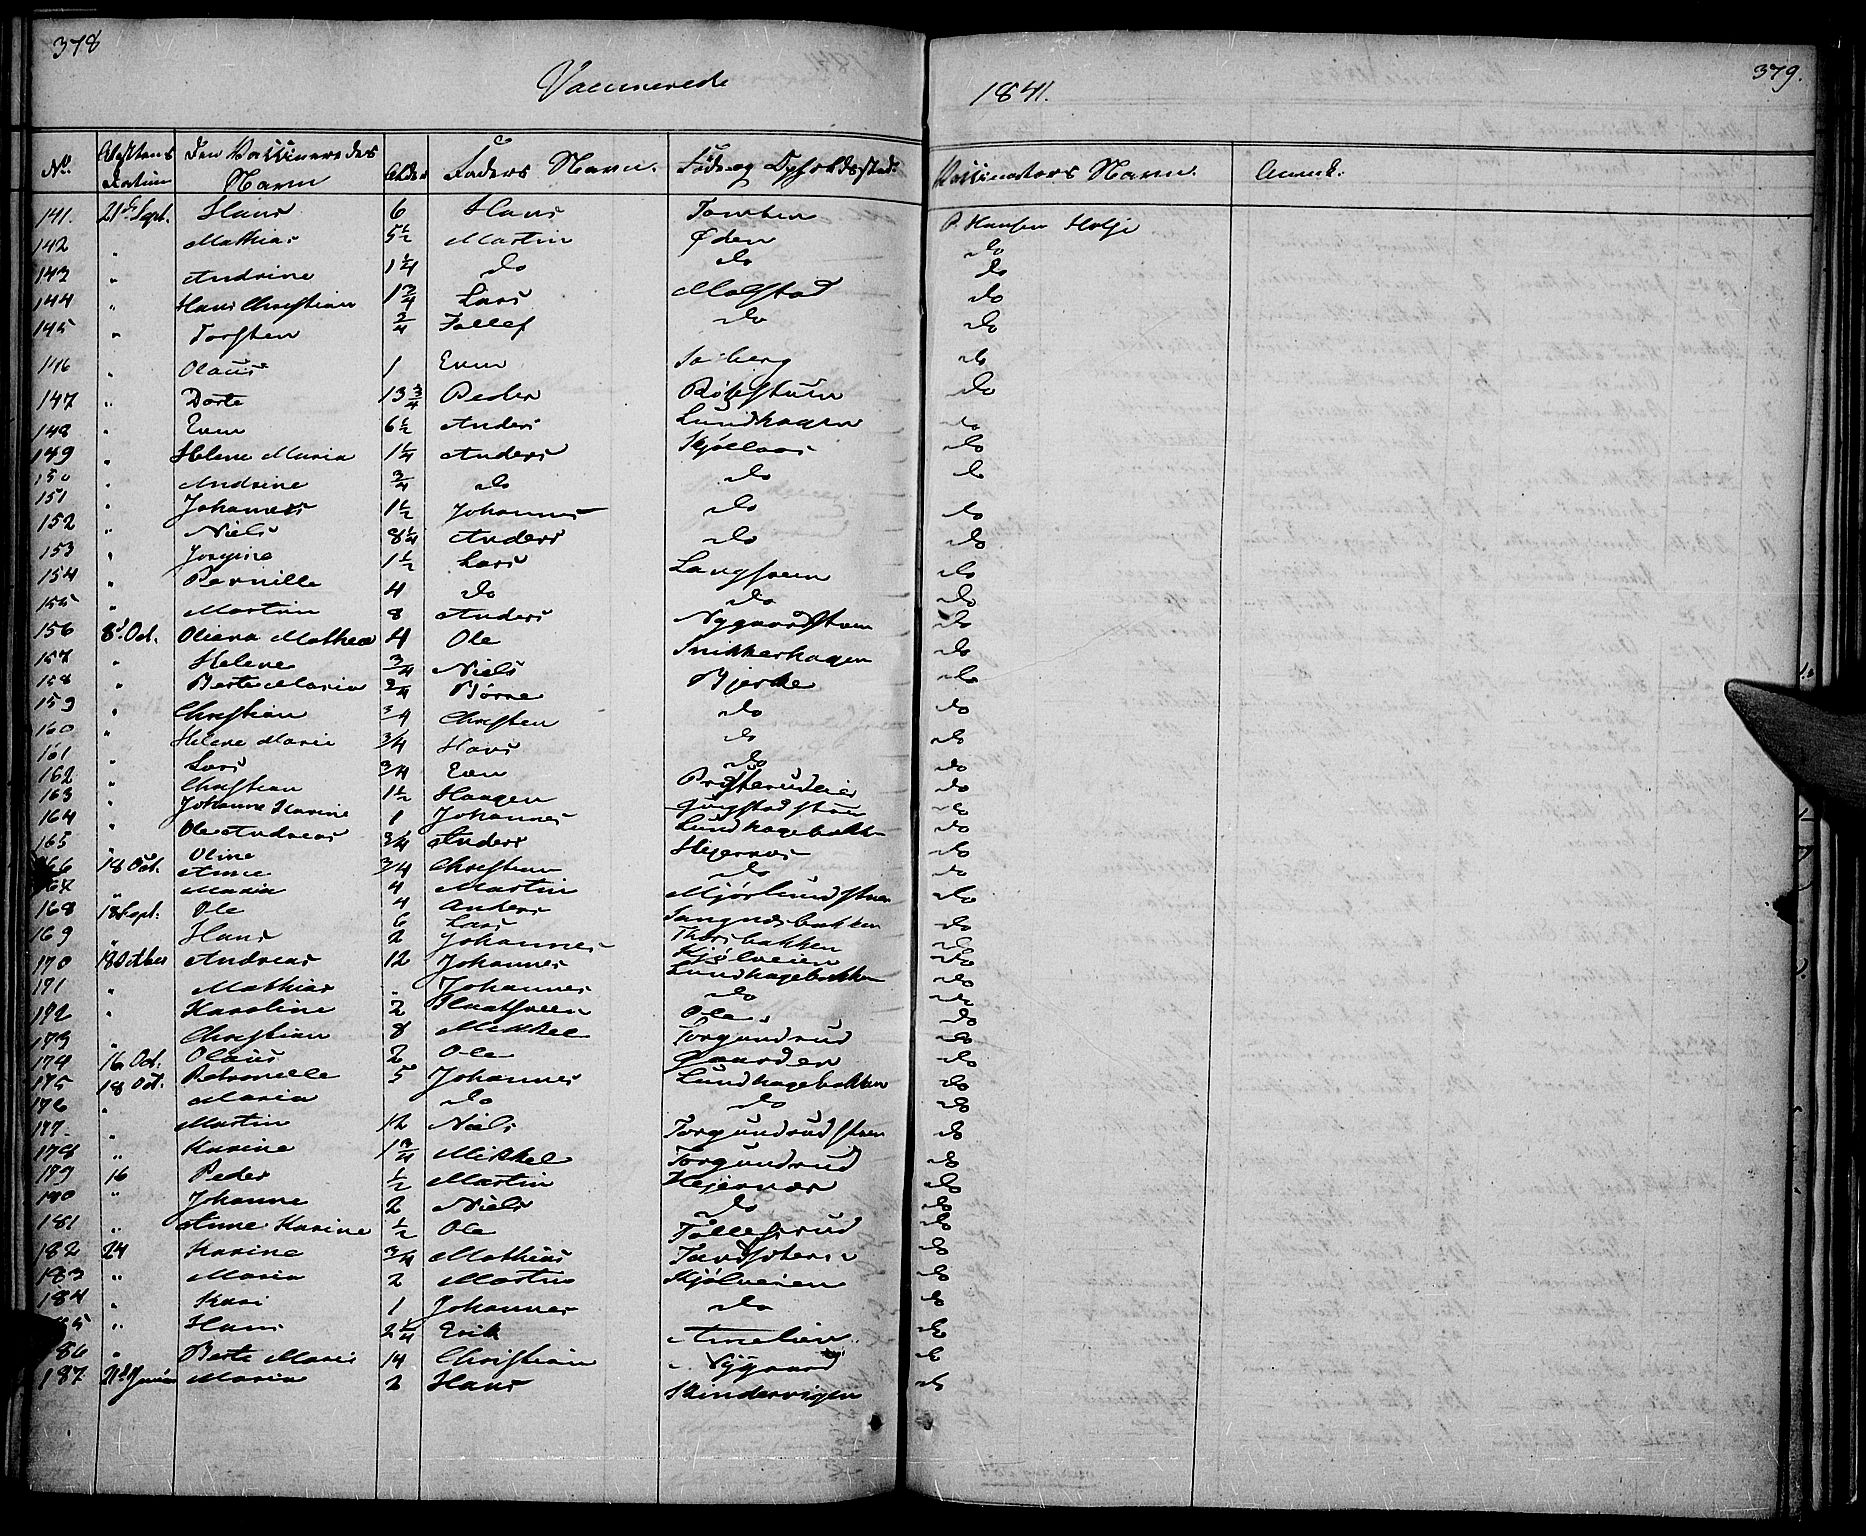 378
Vaccinerede
1841.
379.
No. Attestens Datum Den Vaccineredes Navn Alder Faders Navn. Føde og Opholdssted. Vaccinateurs Navn. Anmk.
141. 21de Sept. Hans 6 Hans Tomten P. Hansen Holje
142 " Mathias 5½ Martin Øden do
143 " Andrine 1¼ do do do
144 " Hans Christian 1¾ Lars Molstad do
145 " Torsten ¾ Tollef do do
146 " Olaus 1 Even do
147 " Dorte 13¾ Peder do
148 " Even 6½ Anders Lundhagen do
149 " Helene Maria 1¼ Anders do
150 " Andrine ¾ do do do
151 " Johannes 1½ Johannes do do
152 " Niels 8¼ Anders do do
153 " Josephine 1½ Lars Langsveen do
154 " Pernille 4 do do do
155 " Martin 8 Anders Nygaardstuen do
156 8de Oct. Oliana Mathea 4 Ole Snikkerhagen do
157 " Helene ¾ Niels Bjerke do
158 " Berte Maria ¾ Børre do do
159 " Christian ¾ Christen do do
160 " Helene Marie ¾ Hans do do
161 " Lars ¾ Even do
162 " Christian 1½ Haagen do
163 " Johanne Karine 1 Johannes Lundhagebakken do
164 " Ole Andreas ¾ Anders Hejernæs do
165 " Oline ¾ Christian do do
166 18 Oct. Anne 4 Martin Mjørlundstuen do
167 " Maria 4 Anders Sangnæsbakken do
168 18 Sept. Ole 6 Lars Thorsbakken do
169 " Hans 2 Johannes Kjølveien do
170 18 October Andreas 12 Johannes Lundhagebakken do
171 " Mathias " Johannes do do
172 " Karoline 2 Ole do
173 " Christian 8 Mikkel Torgundrud do
174 16 Oct. Olaus 2 Ole Gaarder do
175 18 Oct. Petronelle 5 Johannes Lundhagebakken do
176 " Maria do do do
177 " Martin 12 Niels Torgundrudstuen do
178 " Karine 1¾ Mikkel Torgundrud do
179 16 Peder ½ Martin Hejernæs do
180 " Johanne 2 Niels do do
181 " Anne Karine ½ Ole Tollefsrud do
182 24 Karine ¾ Mathias do
183 " Maria 2 Martin Kjølveien do
184 " Kari 1 Johannes do do
185 " Hans 2¼ Erik do
186 " Berte Marie 14 Christian Nygaard do
187 21de Junii Maria 2 Hans Skindervigen do